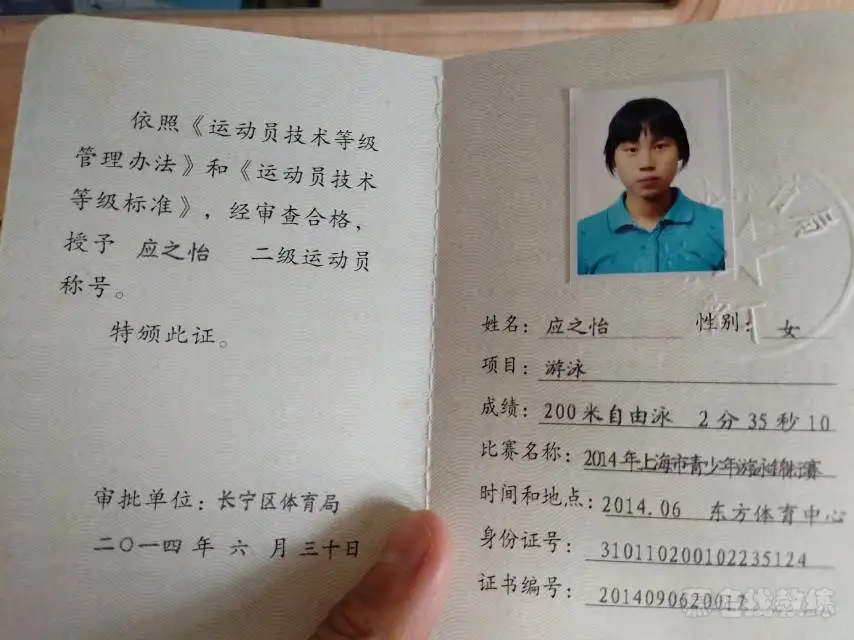 依照《运动员技术等级
管理办法》和《运动员技术
等级标准》，经审查合格，
授予 应之怡 二级运动员
称号。
特颁此证。
审批单位：长宁区体育局
二〇一四 年 六 月 三十日
姓名：应之怡 性别：女
项目：游泳
成绩：200 米自由泳 2 分 35 秒 10
比赛名称：2014 年上海市青少年游泳锦标赛
时间和地点：2014.06 东方体育中心
身份证号：310110200102235124
证书编号：2014090620017
在线教练